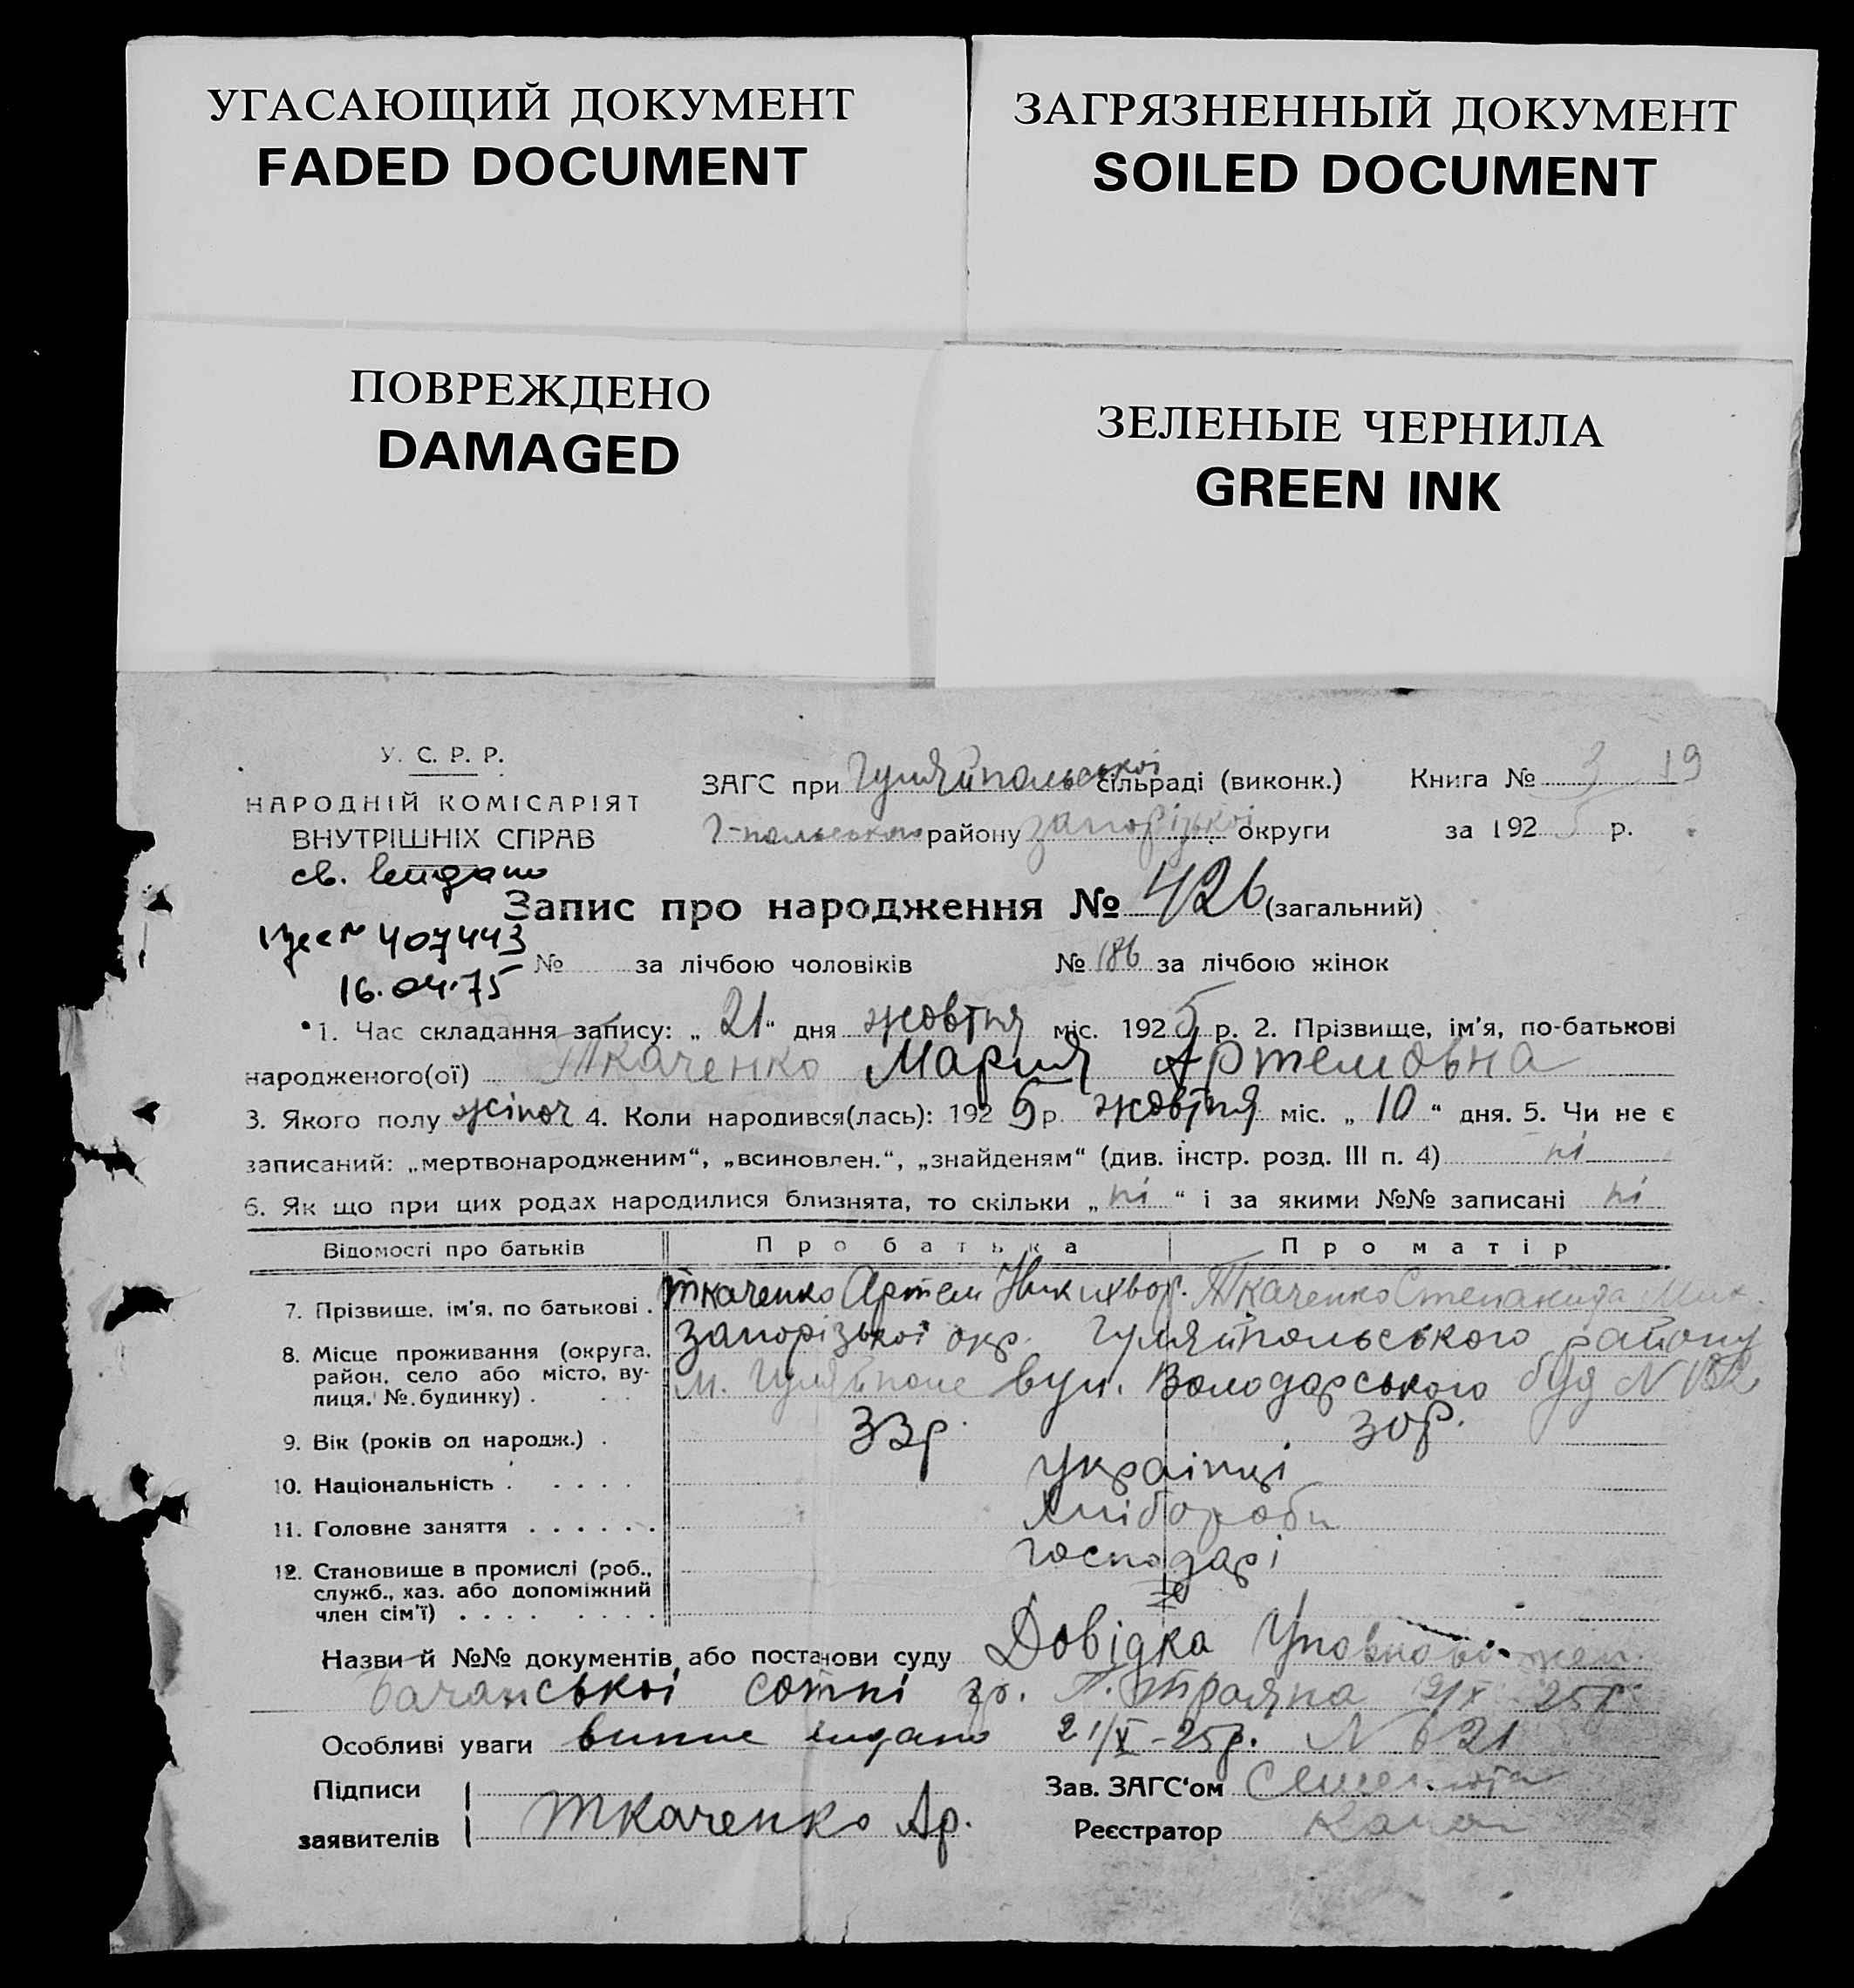 УГАСАЮЩИЙ ДОКУМЕНТ
FADED DOCUMENT
ЗАГРЯЗНЕННЫЙ ДОКУМЕНТ
SOILED DOCUMENT
ПОВРЕЖДЕНО
DAMAGED
ЗЕЛЕНЫЕ ЧЕРНИЛА
GREEN INK
У. С. Р. Р.
НАРОДНІЙ КОМІСАРІЯТ
ВНУТРІШНІХ СПРАВ
ЗАГС при Гуляйпольської сільраді (виконк.) Книга № 3 19
Г-польського району Запорізької округи за 1925 р.
св. видано
407443
16.04.75
Запис про народження № 426 (загальний)
№ за лічбою чоловіків № 186 за лічбою жінок
1. Час складання запису: „ 21 “ дня жовтня міс. 1925 р. 2. Прізвище, ім'я, по-батькові
народженого(ої) Ткаченко Мария Артемовна
3. Якого полу жіноч 4. Коли народився(лась): 1925 р. жовтня міс. „ 10 “ дня. 5. Чи не є
записаний: „мертвонародженим“, „всиновлен.“, „знайденям“ (див. інстр. розд. III п. 4) ні
6. Як що при цих родах народилися близнята, то скільки „ ні “ і за якими №№ записані ні
Відомості про батьків Про батька Про матір
7. Прізвище, ім'я, по батькові . Ткаченко Артем Никихвор. Ткаченко Степанида Мих.
8. Місце проживання (округа, район, село або місто, вулиця, № будинку) . Запорізької окр. Гуляйпольського району
м. Гуляйполе вул. Володарського буд N 182
9. Вік (років од народж.) . 33р. 30р.
10. Національність . . . . . Українці
11. Головне заняття . . . . . . Хлібороби
12. Становище в промислі (роб., служб., хаз. або допоміжний член сім'ї) . . . . . . . . Господарі
Назви й №№ документів або постанови суду Довідка Уповноважен.
сотні гр. 25р.
Особливі уваги видано 21/X-25р. N 621
Підписи заявителів Ткаченко Ар.
Зав. ЗАГС'ом
Реєстратор